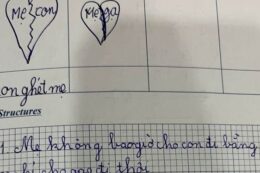 Mẹ con Mẹ ga
on ghét mẹ
Structures
1 Mẹ không bao giờ cho con đi bằng
cho đi thôi